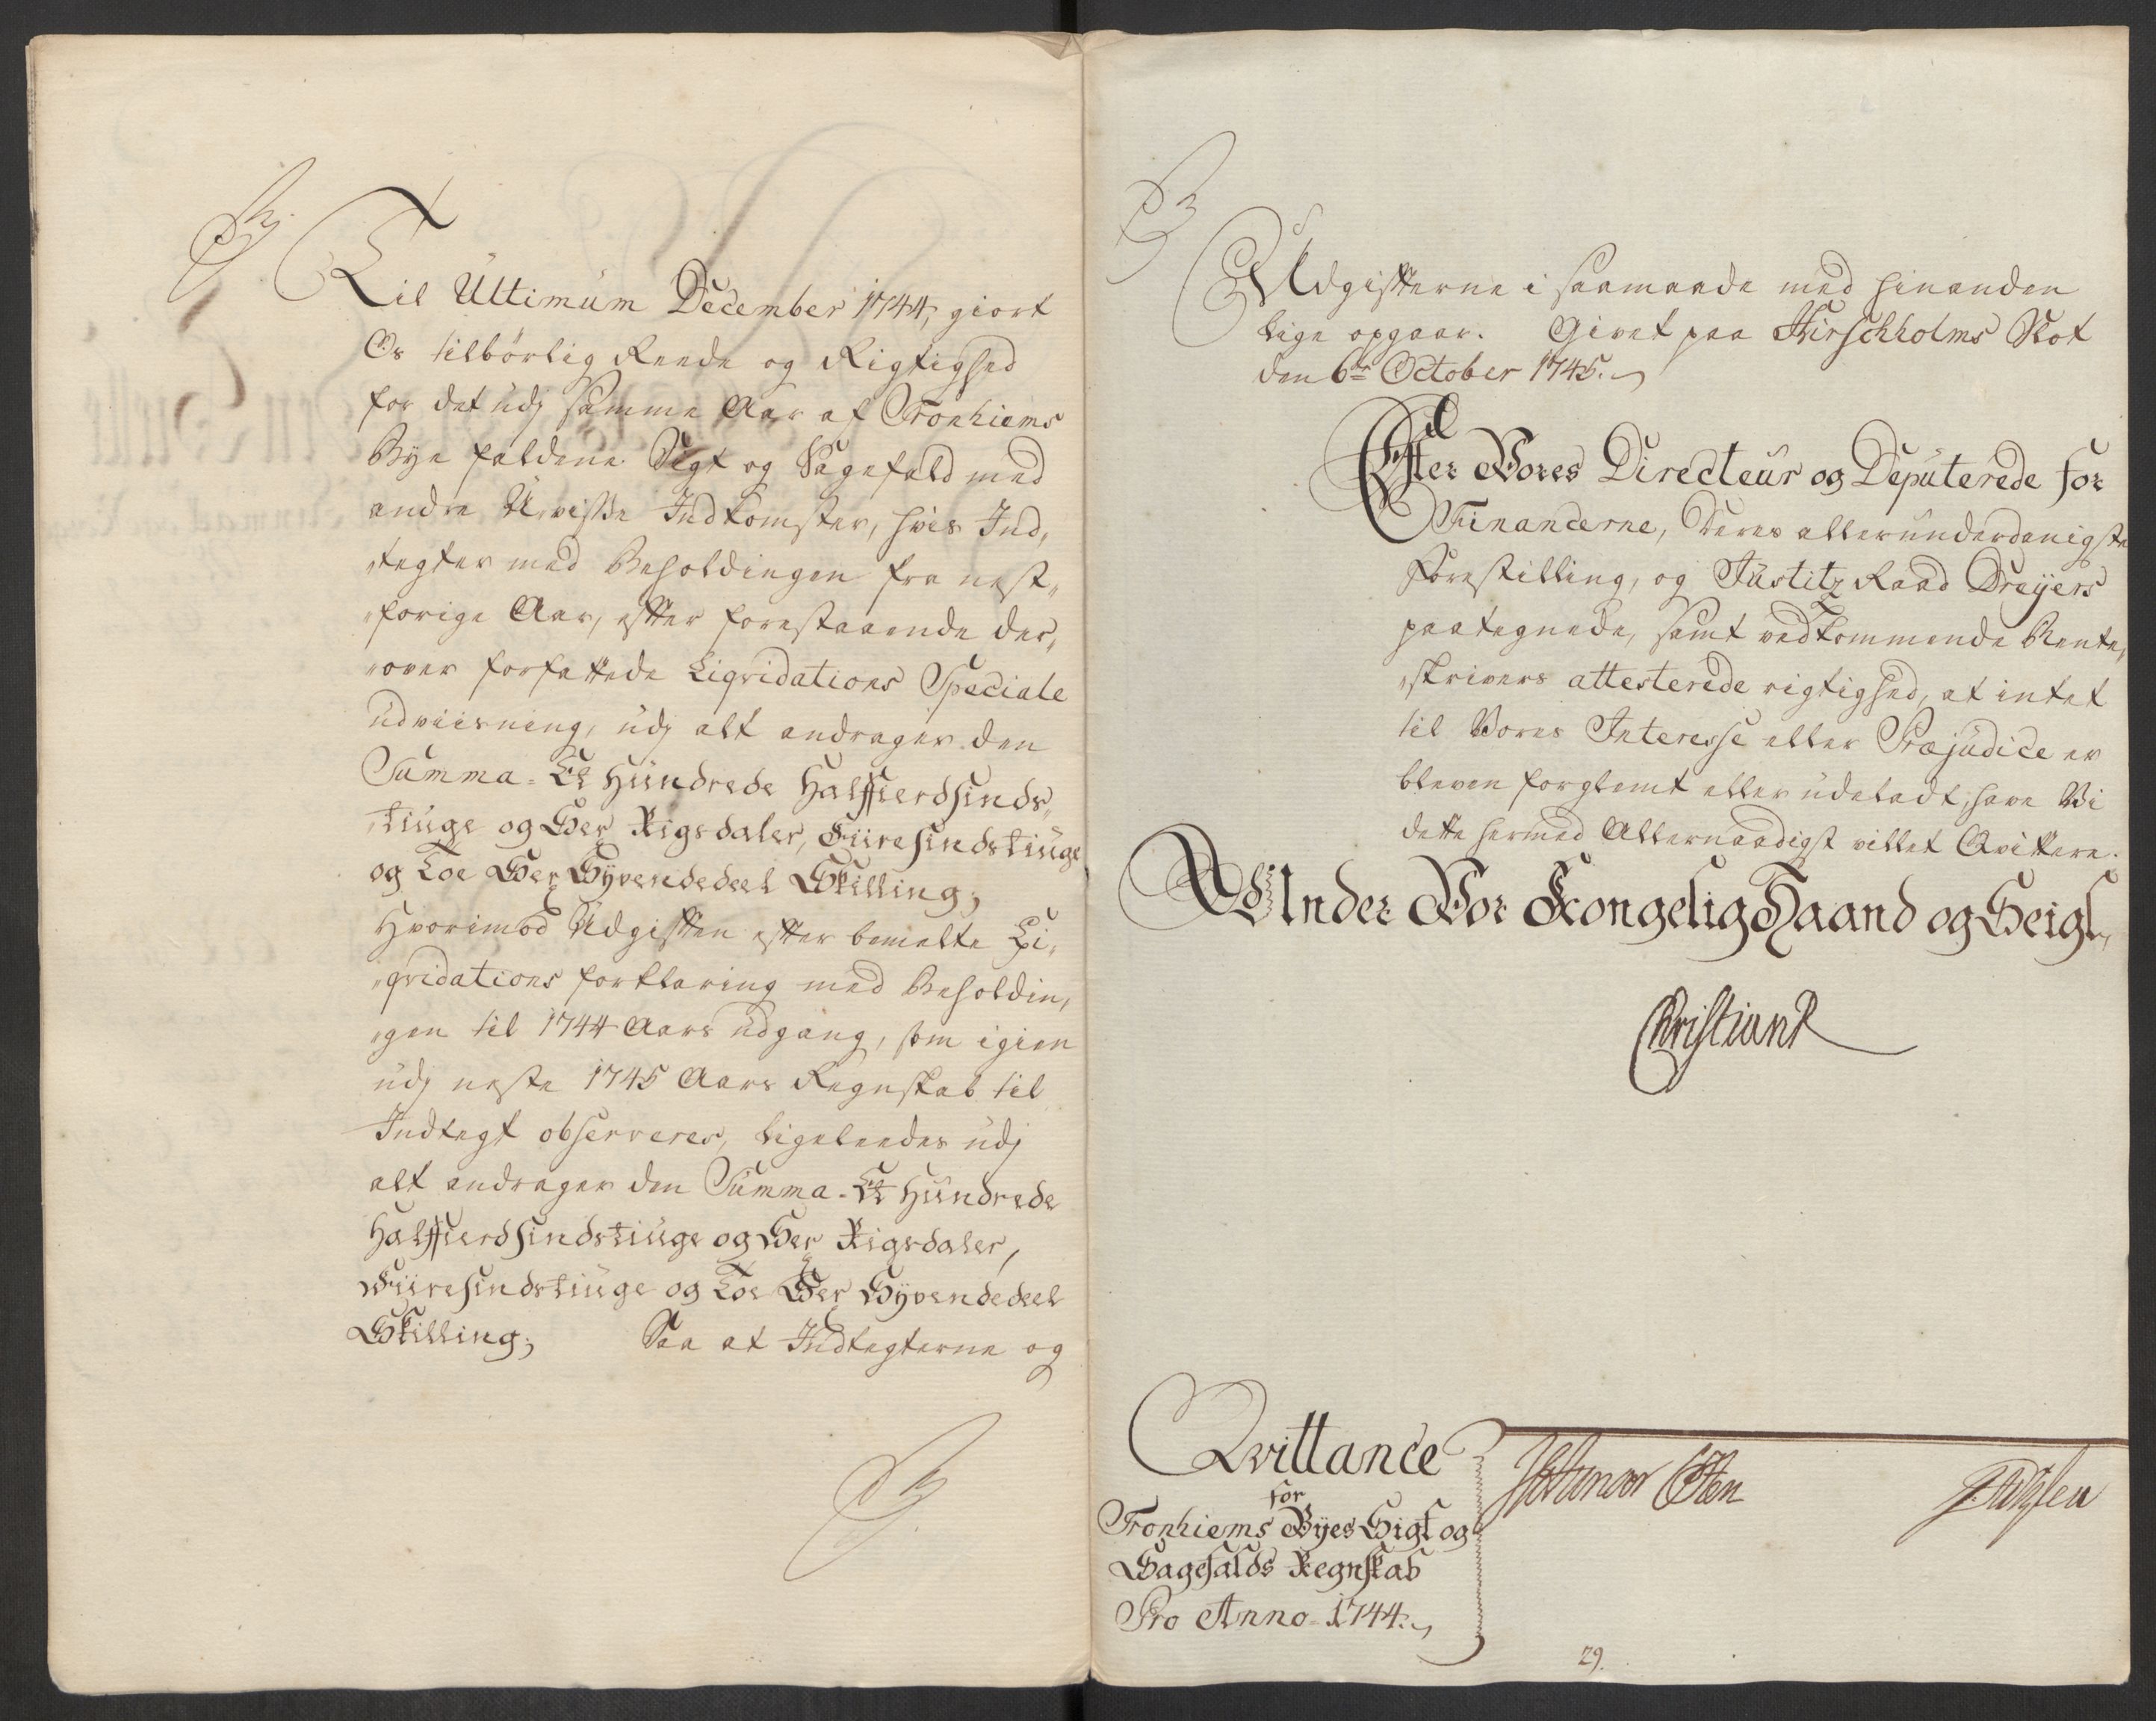 Til Ultimum December 1744, giort
Os tilbörlig Reede og Rigtighed
for det udj samme Aar af Tronhiems
Bye faldene Sigt og Sagefald med
andre Uvisse Indkomster, hvis Ind„
„tegter med Beholdingen fra nest„
„forige Aar, efter forestaaende der„
„over forfattede Liqvidations Speciale
udviisning, udj alt andrager den
Summa - Et Hundrede Halffierdsinds„
„tiuge og Sex Rigsdaler, Fiiresindstiuge
og Toe Sex Syvendedeel Skilling;
Hvorimod Udgiften efter bemelte Li„
„qvidations forklaring med Beholdin„
„gen til 1744 Aars udgang, som igien
udj neste 1745 Aars Regnskab til
Indtegt observeres, ligeleedes udj
alt andrager den Summa - Et Hundrede
Halffierdsindstiuge og Sex Rigsdaler,
Fiiresindstiuge og Toe Sex Syvendedeel
Skilling; Saa at Indtegterne og
Udgifterne i saamaade med hinanden
lige opgaar. Givet paa Hirschholms Slot
den 6te October 1745.
Efter Vores Directeur og Deputerede for
Financerne, Deres allerunderdanigste
Forestilling, og Justitz Raad Dreyers
paategnede, samt vedkommende Rente„
„skrivers attesterede rigtighed, at intet
til Vores Interesse eller Præjudice er
bleven forglemt eller udeladt, have Vi
dette hermed Allernaadigst villet Qvittere.
Under Vor Kongelig Haand og Seigl„
Christian R
Qvittance
for
Tronhiems Byes Sigt og
Sagefalds Regnskab
Pro Anno 1744.
29.